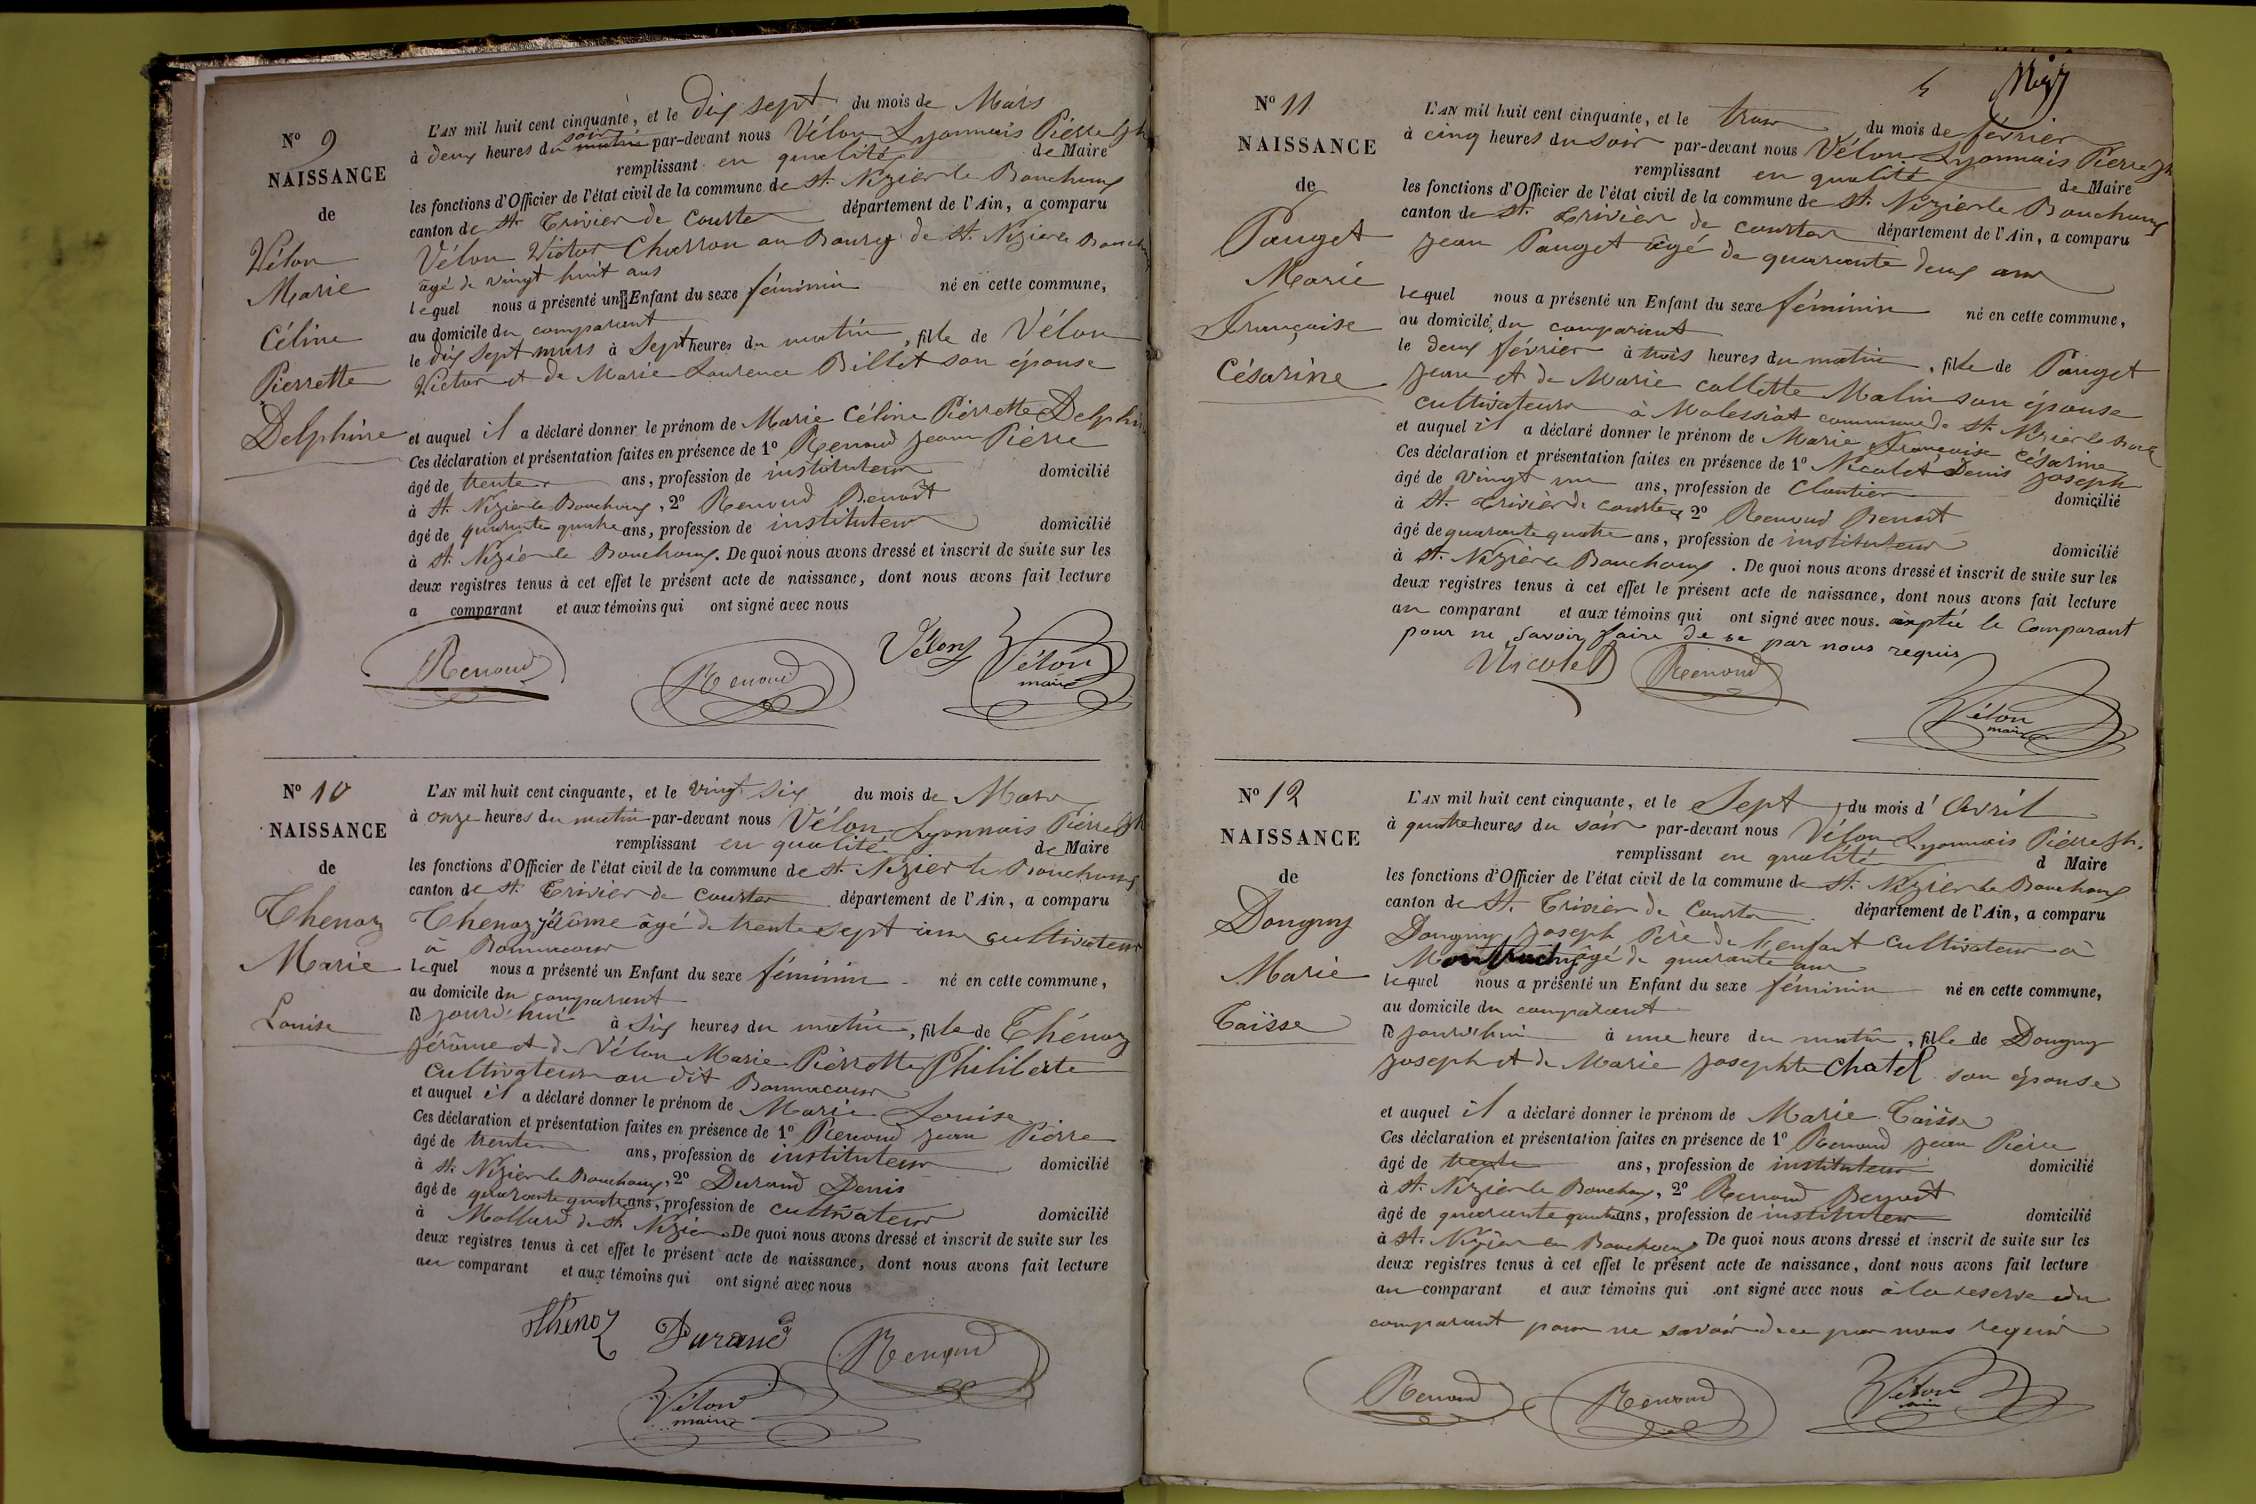 N° 9
NAISSANCE
de
Vélon
Marie
Céline
Pierrette
Delphine
L'AN mil huit cent cinquante, et le dix sept du mois de Mars
à deux heures du soir matin par-devant nous Vélon Lyonnais Pierre Jh
remplissant en qualité de Maire
les fonctions d'Officier de l'état civil de la commune de St. Nizier le Bouchoux
canton de St Trivier de Courtes département de l'Ain, a comparu
Vélon Victor Charron au Bourg de St. Nizier le Bouch
âgé de vingt huit ans
lequel nous a présenté un Enfant du sexe féminin né en cette commune,
au domicile du comparant
le dix sept mars à sept heures du matin, fille de Vélon
Victor et de Marie Laurence Billet son épouse
et auquel il a déclaré donner le prénom de Marie Céline Pierrette Delphine
Ces déclaration et présentation faites en présence de 1° Renoud Jean Pierre
âgé de trente ans, profession de instituteur domicilié
à St. Nizier le Bouchoux, 2° Renoud Benoît
âgé de quarante quatre ans, profession de instituteur domicilié
à St. Nizier le Bouchoux. De quoi nous avons dressé et inscrit de suite sur les
deux registres tenus à cet effet le présent acte de naissance, dont nous avons fait lecture
a comparant et aux témoins qui ont signé avec nous
Renoud Renoud Vélon Vélon
maire
N° 10
NAISSANCE
de
Thenoz
Marie
Louise
L'AN mil huit cent cinquante, et le vingt six du mois de Mars
à onze heures du matin par-devant nous Vélon Lyonnais Pierre Jh
remplissant en qualité de Maire
les fonctions d'Officier de l'état civil de la commune de St. Nizier le Bouchoux
canton de St. Trivier de Courtes département de l'Ain, a comparu
Thenoz Jérôme âgé de trente sept ans cultivateur
à Bonnacour
lequel nous a présenté un Enfant du sexe féminin né en cette commune,
au domicile du comparant
le jourd'hui à six heures du matin, fille de Thénoz
Jérôme et de Vélon Marie Pierrette Philiberte
cultivateurs au dit Bonnacour
et auquel il a déclaré donner le prénom de Marie Louise
Ces déclaration et présentation faites en présence de 1° Renoud Jean Pierre
âgé de trente ans, profession de instituteur domicilié
à St. Nizier le Bouchoux, 2° Durand Denis
âgé de quarante quatre ans, profession de cultivateur domicilié
à Mollard de St. Nizier. De quoi nous avons dressé et inscrit de suite sur les
deux registres tenus à cet effet le présent acte de naissance, dont nous avons fait lecture
au comparant et aux témoins qui ont signé avec nous
Thenoz Durand Renoud
Vélon
maire
N° 11
NAISSANCE
de
Pauget
Marie
Françoise
Césarine
L'AN mil huit cent cinquante, et le trois du mois de février
à cinq heures du soir par-devant nous Vélon Lyonnais Pierre Jh
remplissant en qualité de Maire
les fonctions d'Officier de l'état civil de la commune de St. Nizier le Bouchoux
canton de St. Trivier de Courtes département de l'Ain, a comparu
Jean Pauget âgé de quarante deux ans
lequel nous a présenté un Enfant du sexe féminin né en cette commune,
au domicile du comparant
le deux février à trois heures du matin, fille de Pauget
Jean et de Marie Collette Malin son épouse
cultivateurs à Malessiat commune de St. Nizier le Bouc
et auquel il a déclaré donner le prénom de Marie Françoise Césarine
Ces déclaration et présentation faites en présence de 1° Nicolet Denis Joseph
âgé de vingt un ans, profession de Cloutier domicilié
à St. Trivier de Courtes, 2° Renoud Benoît
âgé de quarante quatre ans, profession de instituteur domicilié
à St. Nizier le Bouchoux. De quoi nous avons dressé et inscrit de suite sur les
deux registres tenus à cet effet le présent acte de naissance, dont nous avons fait lecture
au comparant et aux témoins qui ont signé avec nous. éxptée le Comparant
pour ne savoir faire de ce par nous requis
Nicolet Renoud
Vélon
maire
N° 12
NAISSANCE
de
Dongny
Marie
Taïsse
L'AN mil huit cent cinquante, et le Sept du mois d'Avril
à quatre heures du soir par-devant nous Vélon Lyonnais Pierre Jh.
remplissant en qualité d Maire
les fonctions d'Officier de l'état civil de la commune de St. Nizier le Bouchoux
canton de St. Trivier de Courtes département de l'Ain, a comparu
Dongny Joseph Père de l'enfant cultivateur à
âgé de quarante ans
lequel nous a présenté un Enfant du sexe féminin né en cette commune,
au domicile du comparant
le jourd'hui à une heure du matin, fille de Dongny
Joseph et de Marie Josephte Chatel son épouse
et auquel il a déclaré donner le prénom de Marie Taïsse
Ces déclaration et présentation faites en présence de 1° Renoud Jean Pierre
âgé de trente ans, profession de instituteur domicilié
à St. Nizier le Bouchoux, 2° Renoud Benoît
âgé de quarante quatre ans, profession de instituteur domicilié
à St. Nizier le Bouchoux De quoi nous avons dressé et inscrit de suite sur les
deux registres tenus à cet effet le présent acte de naissance, dont nous avons fait lecture
au comparant et aux témoins qui ont signé avec nous à la reserve du
comparant pour ne savoir de ce par nous requis
Renoud Renoud Vélon